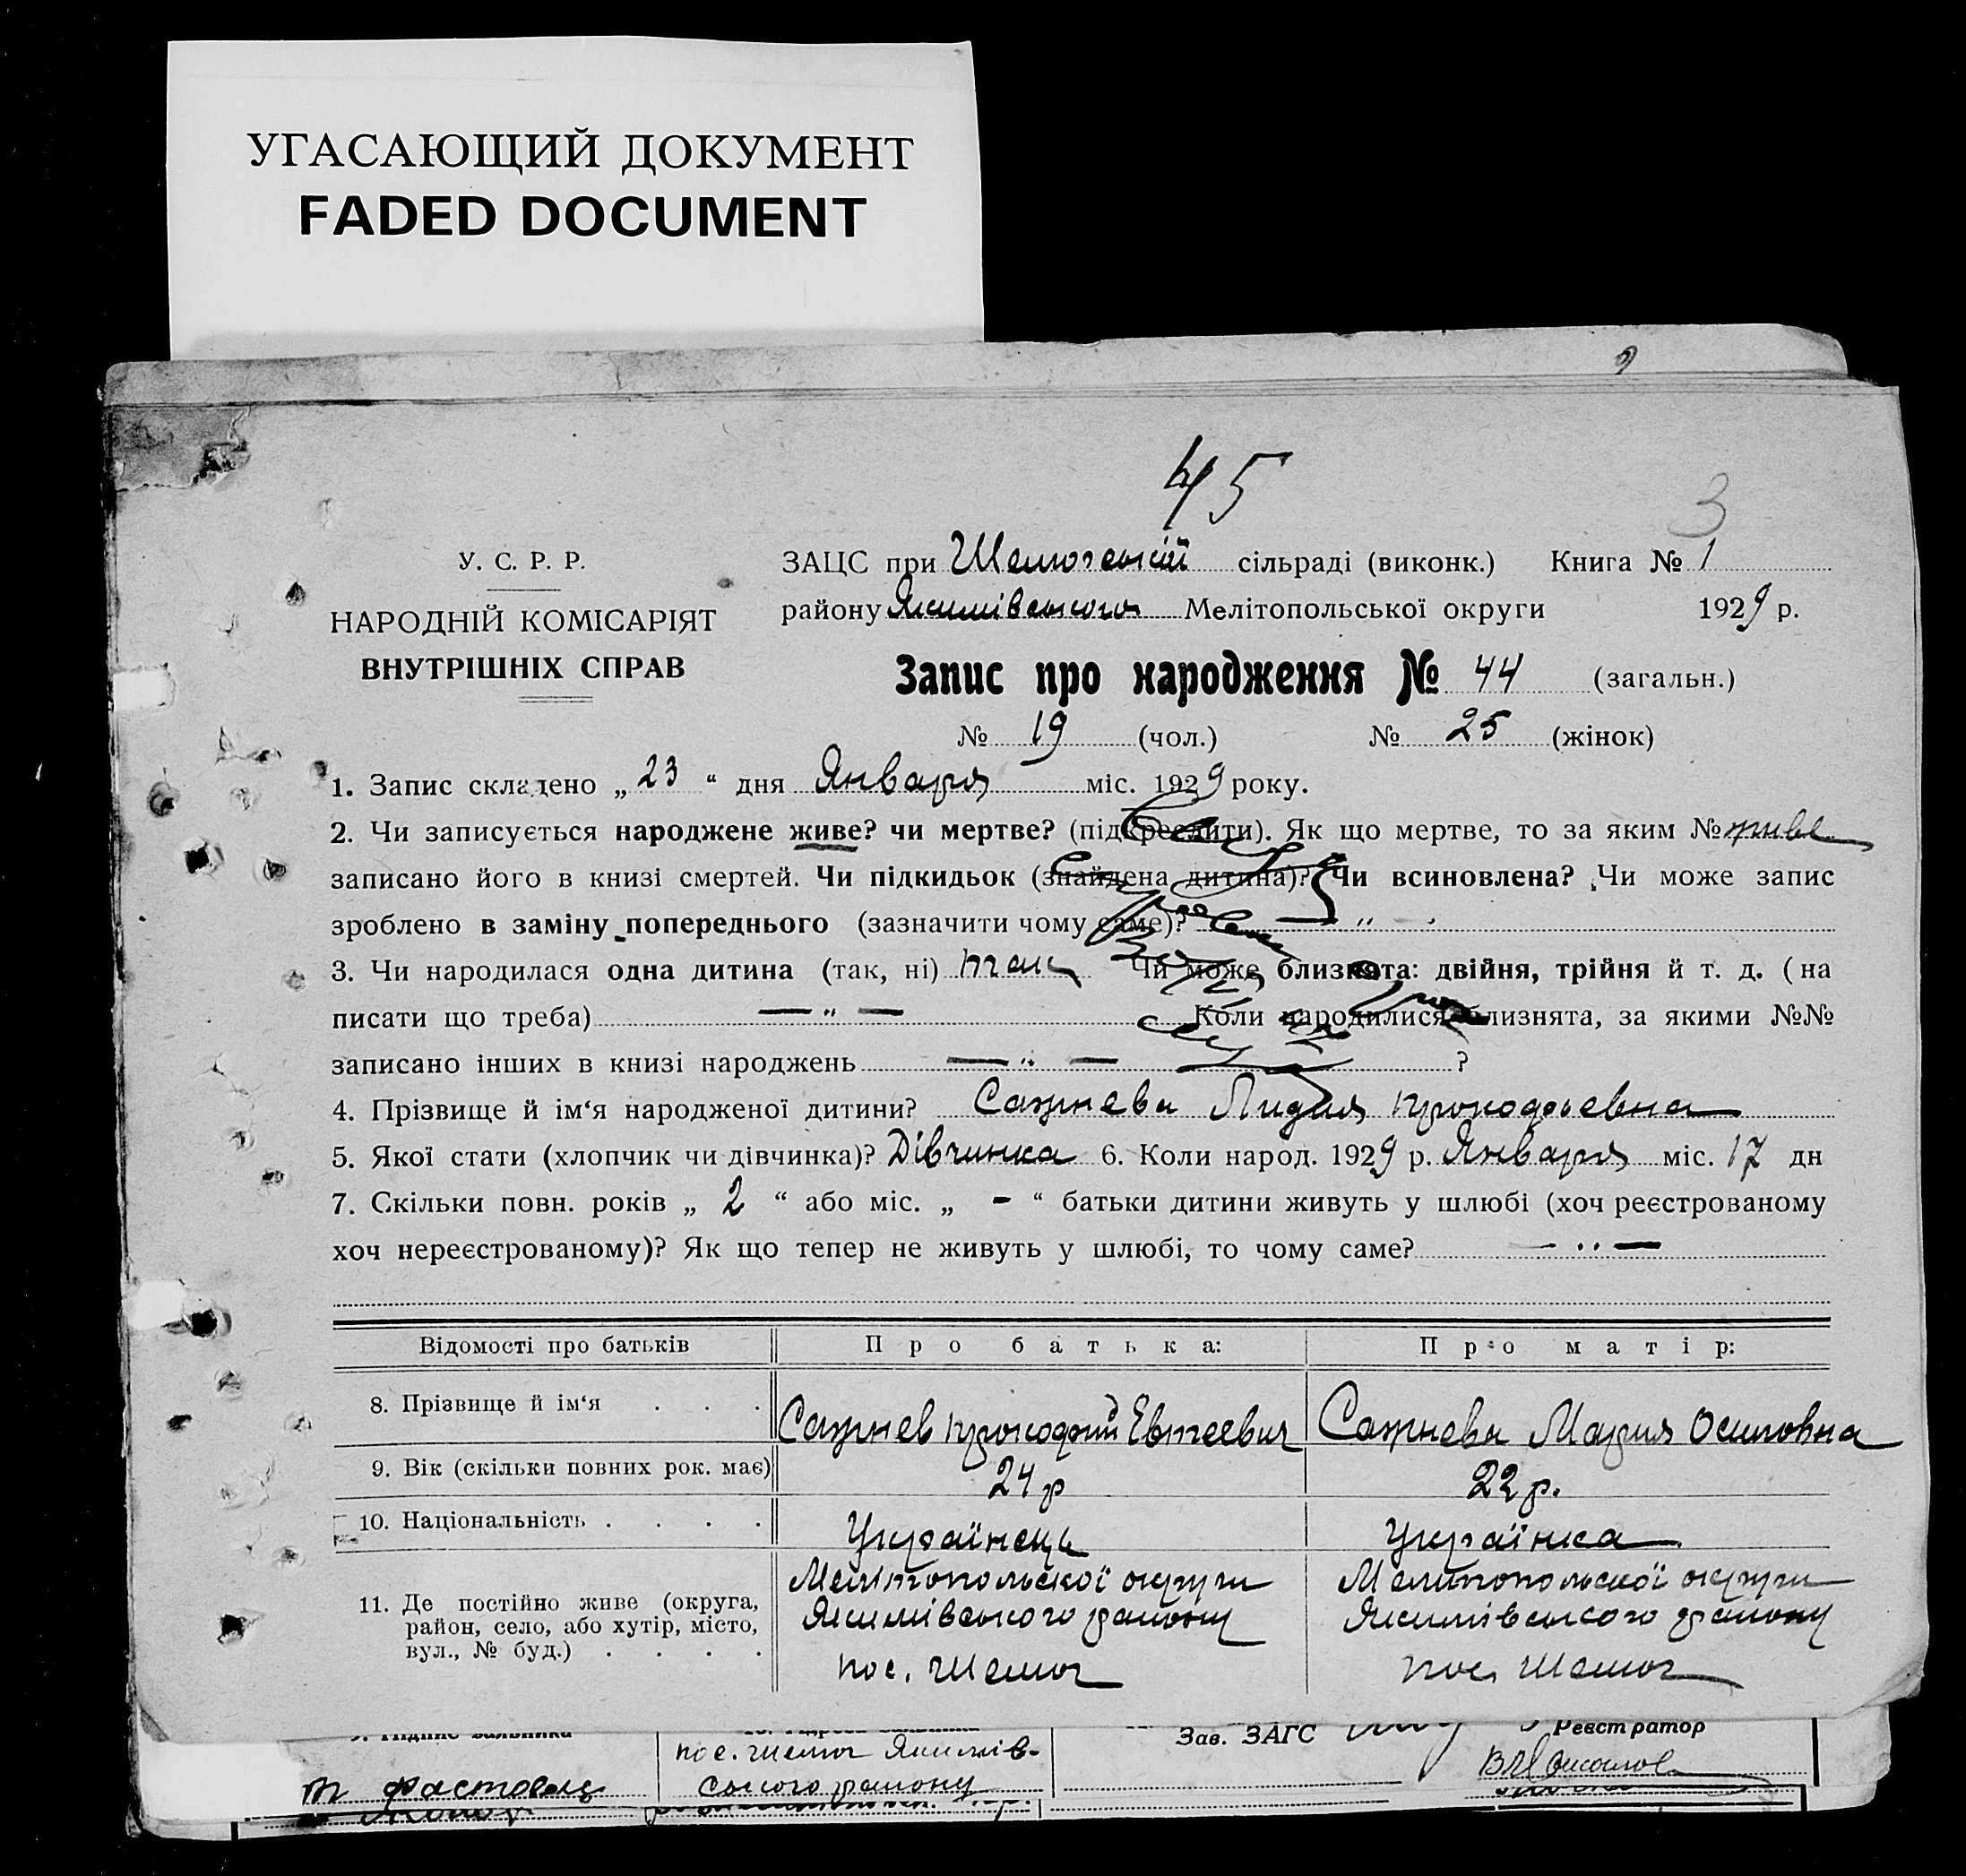 УГАСАЮЩИЙ ДОКУМЕНТ
FADED DOCUMENT
45
3
У. С. Р. Р.
НАРОДНІЙ КОМІСАРІЯТ
ВНУТРІШНІХ СПРАВ
ЗАЦС при Шелюгській сільраді (виконк.) Книга № 1
району Якимівського Мелітопольської округи 1929 р.
Запис про народження № 44 (загальн.)
№ 19 (чол.) № 25 (жінок)
1. Запис складено „ 23 “ дня Января міс. 1929 року.
2. Чи записується народжене живе? чи мертве? (підкреслити). Як що мертве, то за яким № живе
записано його в книзі смертей. Чи підкидьок (знайдена дитина)? Чи всиновлена? Чи може запис
зроблено в заміну попереднього (зазначити чому саме)? — „ —
3. Чи народилася одна дитина (так, ні) так Чи може близнята: двійня, трійня й т. д. (на
писати що треба) — „ — Коли народилися близнята, за якими №№
записано інших в книзі народжень — „ — ?
4. Прізвище й ім‘я народженої дитини? Сажнева Лидия Прокофьевна
5. Якої стати (хлопчик чи дівчинка)? Дівчинка 6. Коли народ. 1929 р. Января міс. 17 дн
7. Скільки повн. років „ 2 “ або міс. „ - “ батьки дитини живуть у шлюбі (хоч реєстрованому
хоч нереєстрованому)? Як що тепер не живуть у шлюбі, то чому саме? — „ —
Відомості про батьків Про батька: Про матір:
8. Прізвище й ім‘я . . . Сажнев Прокофий Евтеевич Сажнева Мария Осиповна
9. Вік (скільки повних рок. має) 24 р 22 р.
10. Національність . . . . Українець Українка
11. Де постійно живе (округа, район, село, або хутір, місто, вул., № буд.) . . . .
Мелітопольскої округи
Якимівського району
пос. Шелюг
Мелітопольскої округи
Якимівського району
пос. Шелюг
Зав. ЗАГС Реєстратор
пос. Шелюг Якимів-
ського району
Фастовец